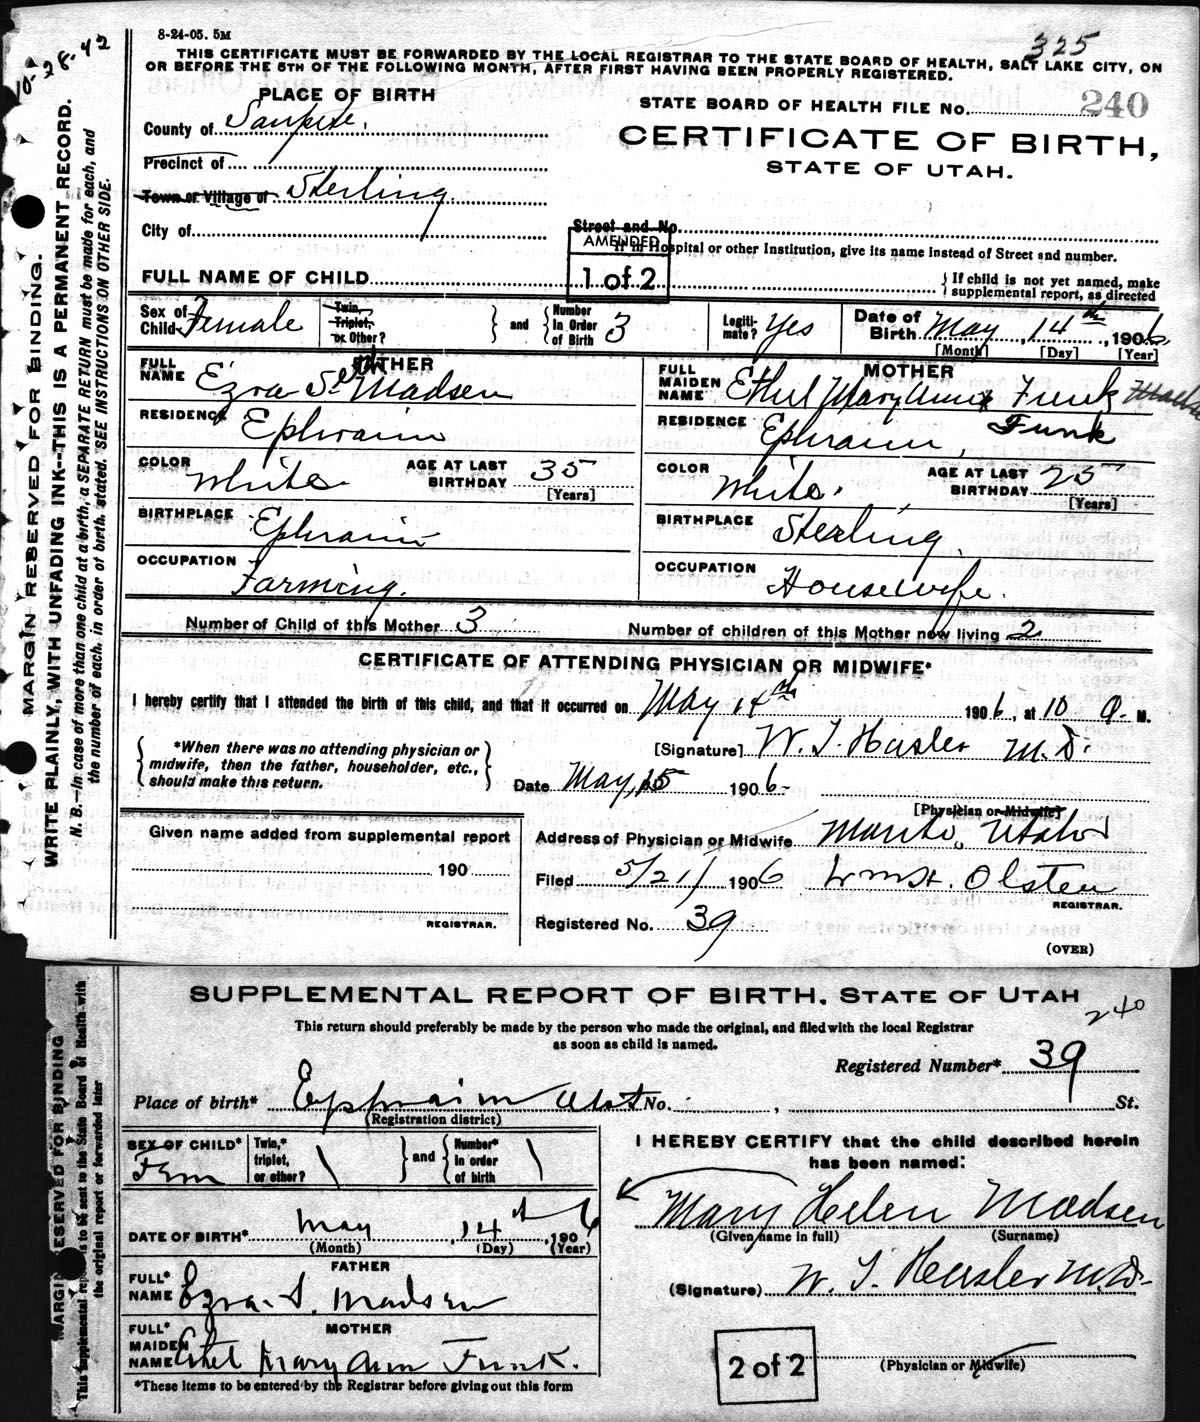 8-24-05. 5M
10-28-42
325
THIS CERTIFICATE MUST BE FORWARDED BY THE LOCAL REGISTRAR TO THE STATE BOARD OF HEALTH, SALT LAKE CITY, ON
OR BEFORE THE 5TH OF THE FOLLOWING MONTH, AFTER FIRST HAVING BEEN PROPERLY REGISTERED.
MARGIN RESERVED FOR BINDING.
WRITE PLAINLY, WITH UNFADING INK--THIS IS A PERMANENT RECORD.
N. B.--In case of more than one child at a birth, a SEPARATE RETURN must be made for each, and
the number of each, in order of birth, stated. SEE INSTRUCTIONS ON OTHER SIDE.
PLACE OF BIRTH
STATE BOARD OF HEALTH FILE No. 240
County of Sanpete.
CERTIFICATE OF BIRTH,
STATE OF UTAH.
Precinct of
Town or Village of Sterling.
City of
Street and No.
AMENDED
1 of 2
If in Hospital or other Institution, give its name instead of Street and number.
FULL NAME OF CHILD
If child is not yet named, make
supplemental report, as directed
Sex of Child Female
Twin, Triplet, or Other?
and
Number in Order of Birth 3
Legiti-mate? Yes
Date of Birth May, 14th, 1906
[Month] [Day] [Year]
FATHER
MOTHER
FULL NAME Ezra Seth Madsen
FULL MAIDEN NAME Ethel Mary Ann Funk
RESIDENCE Ephraim
RESIDENCE Ephraim, Funk
COLOR White. AGE AT LAST BIRTHDAY 35 [Years]
COLOR White. AGE AT LAST BIRTHDAY 25 [Years]
BIRTHPLACE Ephraim
BIRTHPLACE Sterling
OCCUPATION Farming.
OCCUPATION Housewife.
Number of Child of this Mother 3
Number of children of this Mother now living 2
CERTIFICATE OF ATTENDING PHYSICIAN OR MIDWIFE*
I hereby certify that I attended the birth of this child, and that it occurred on May 14th 1906, at 10 a. M.
*When there was no attending physician or
midwife, then the father, householder, etc.,
should make this return.
[Signature] W. T. Hasler M.D.
Date May, 15 1906-
[Physician or Midwife]
Given name added from supplemental report
190
REGISTRAR.
Address of Physician or Midwife Manti, Utah
Filed 5/21/ 1906 Wm H. Olsten
REGISTRAR.
Registered No. 39
(OVER)
MARGIN RESERVED FOR BINDING
This supplemental report is to be sent to the State Board of Health with
the original report or forwarded later
SUPPLEMENTAL REPORT OF BIRTH, STATE OF UTAH
240
This return should preferably be made by the person who made the original, and filed with the local Registrar
as soon as child is named.
Registered Number* 39
Place of birth* Ephraim Utah No. , St.
(Registration district)
SEX OF CHILD* Fem
Twin,* triplet, or other?
and
Number* in order of birth
I HEREBY CERTIFY that the child described herein
has been named:
Mary Helen Madsen
(Given name in full) (Surname)
DATE OF BIRTH* May, 14th, 1906
(Month) (Day) (Year)
FATHER
FULL* NAME Ezra S. Madsen
(Signature) W. T. Hasler M.D-
MOTHER
FULL* MAIDEN NAME Ethel Mary Ann Funk.
2 of 2
(Physician or Midwife)
*These items to be entered by the Registrar before giving out this form